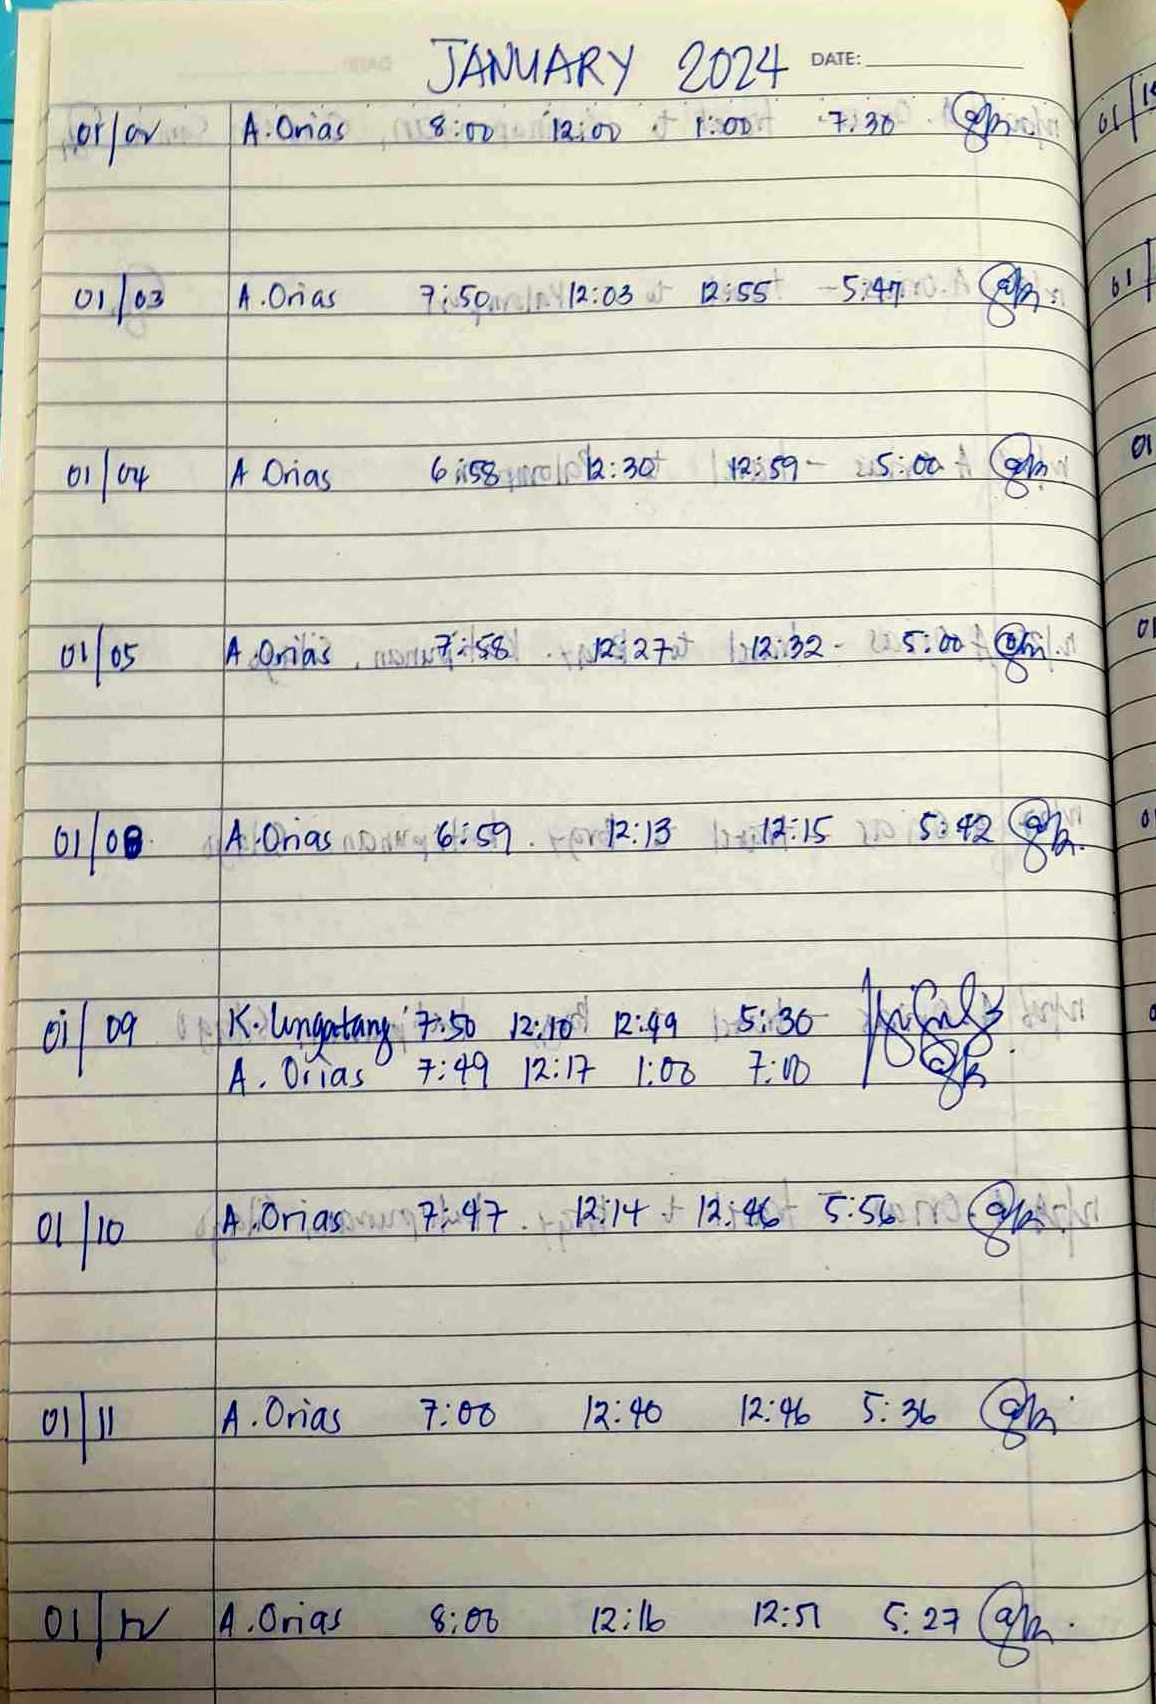 JANUARY 2024 DATE:
01/02 A. Orias 8:00 12:00 1:00 7:30
01/03 A. Orias 7:50 12:03 12:55 5:47
01/04 A Orias 6:58 12:30 12:59 5:00
01/05 A. Orias 7:58 12:27 12:32 5:00
01/08 A. Orias 6:59 12:13 12:15 5:42
01/09 K. Ungatang 7:50 12:10 12:49 5:30
A. Orias 7:49 12:17 1:00 7:00
01/10 A. Orias 7:47 12:14 12:46 5:56
01/11 A. Orias 7:00 12:40 12:46 5:36
01/12 A. Orias 8:00 12:16 12:51 5:27